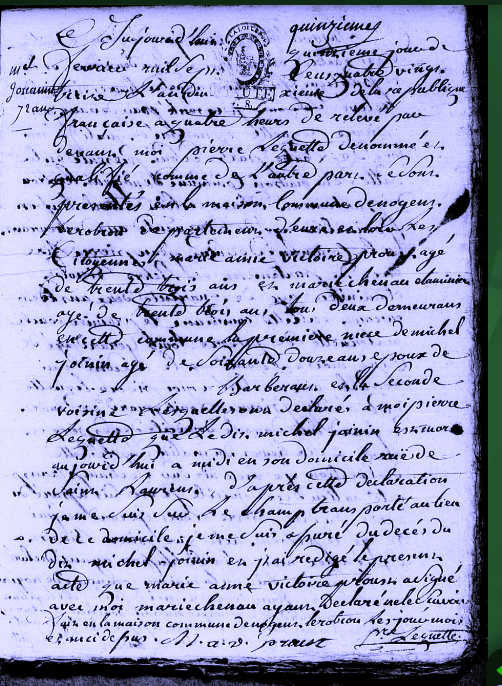 quinzieme
Aujourd'hui quinzieme jour de
fevrier mil sept cens quatre vingt
Joannin
treize L'an deuxieme de la republique
francaise a quatre heurs de relevé par
devant moi pierre Lequette denommé et
qualifié comme dez L'autre part se sont
presentés en la maison Commune de nogent
le rotrou departement d'eure et loir Les
Citoyennes marie anne victoire proust agé
de trente trois ans et marie chenau
agé de trente trois ans tous deux demeurans
en cette commune la premiere niece de michel
joinin agé de soixante douze ans epoux de
Barberau et la seconde
voisine Lesquelles ont declarés à moi pierre
Lequette que Ledit michel joinin est mort
aujourd'hui a midi en son domicile rue de
Saint Laurent. D'après cette declaration
je me suis sur Le champ transporté au lieu
de ce domicile je me suis assuré du decés du
dit michel joinin et j'ai redigé le present
acte que marie anne victoire proust a signé
avec moi marie chenau ayant declaré ne le savoir
fait en la maison commune de nogent le rotrou les jour mois
et an ci dessus M. a. v. proust
Lequette